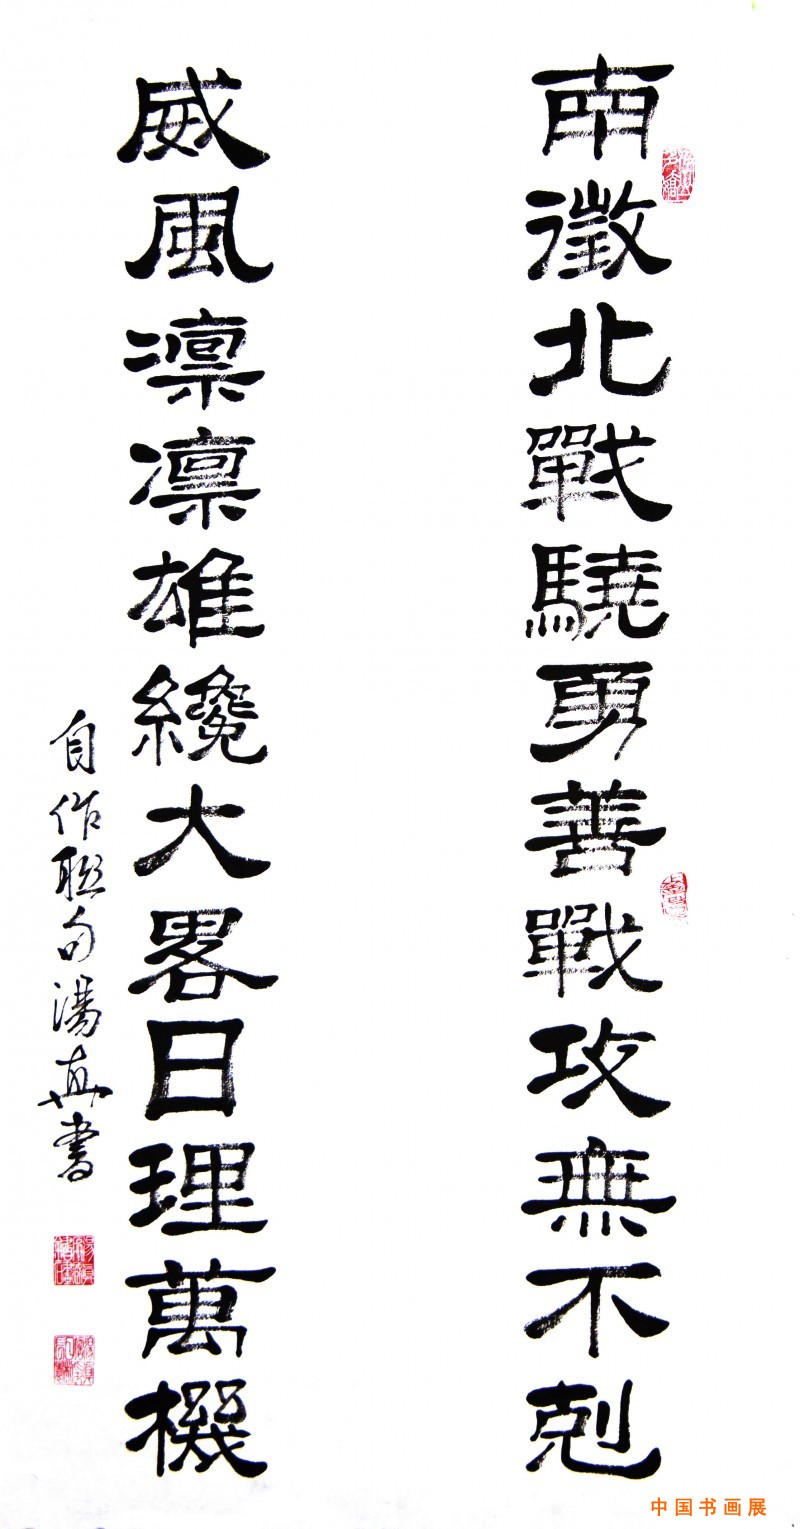 南徵北戰驍勇善戰攻無不剋
威風凛凛雄纔大畧日理萬機
自作联句湯真書
中国书画展